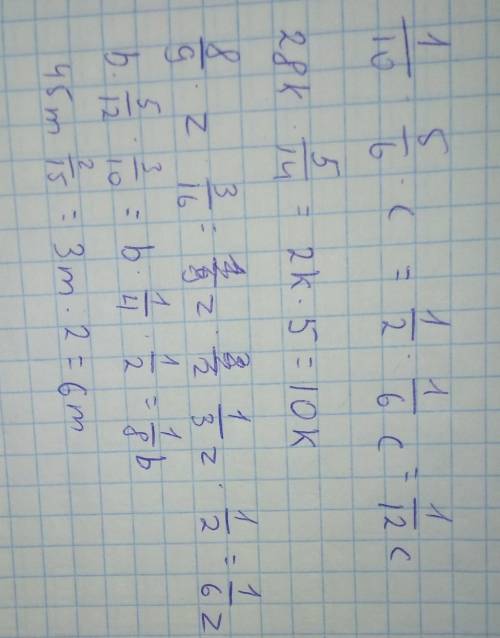 1/10 · 5/6 · c = 1/2 · 1/6 c = 1/12 c
28k · 5/14 = 2k · 5 = 10k
8/9 · z 3/16 = z · 1/3 z · 1/2 = 1/6 z
b · 5/12 · 3/10 = b · 1/4 · 1/2 = 1/8 b
45m 2/15 = 3m · 2 = 6m